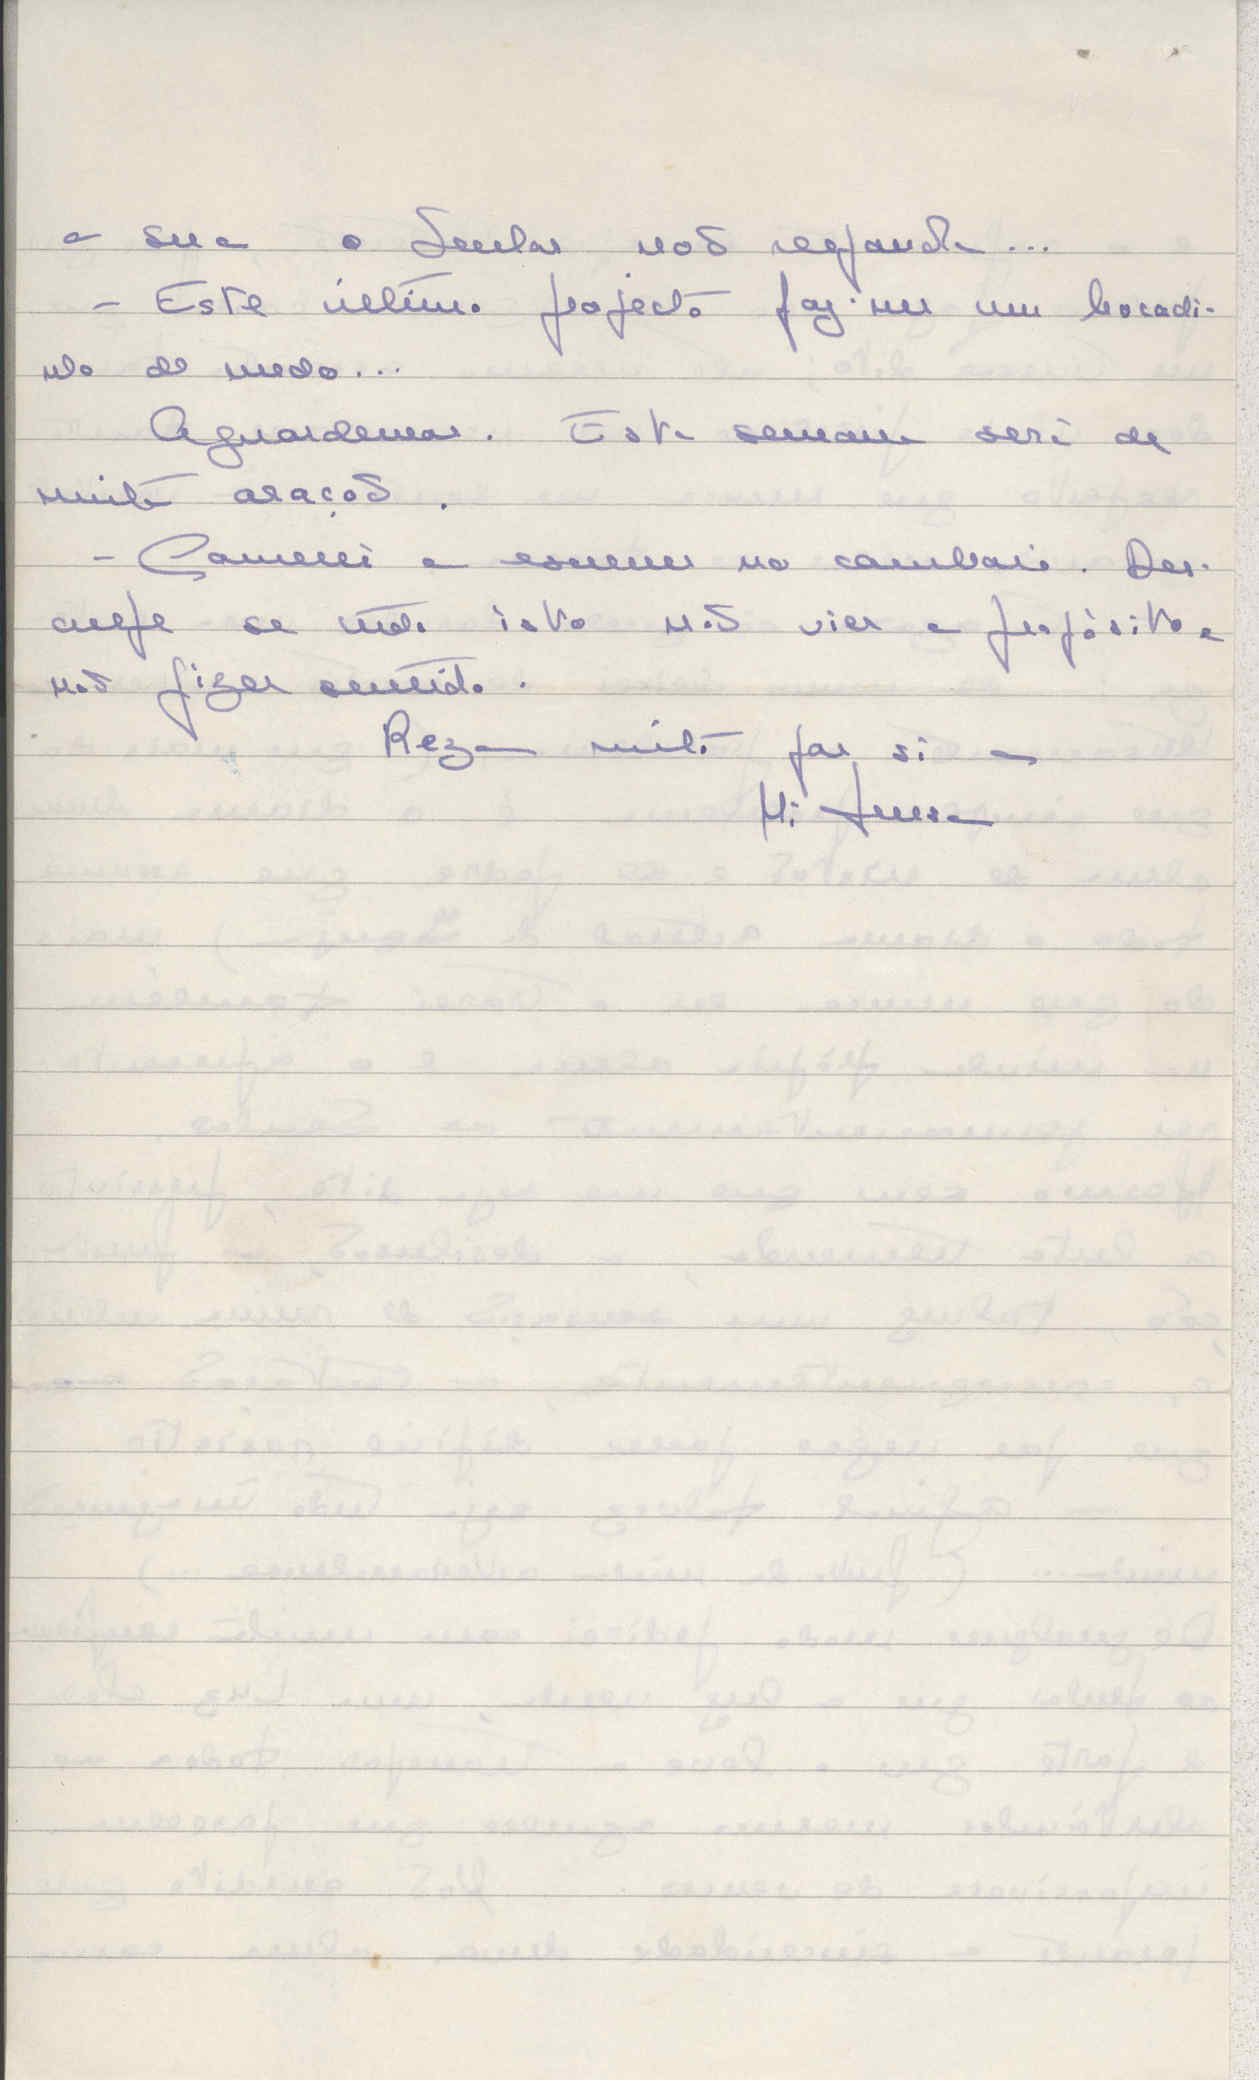 a sua o Senhor não responda...
- Este último projecto faz-me um bocadi-
nho de medo...
Aguardemos. Esta semana será de
muita oração.
- Comecei a escrever no comboio. Des-
culpe se tudo isto não vier a propósito e
não fizer sentido.
Reza muito por si a